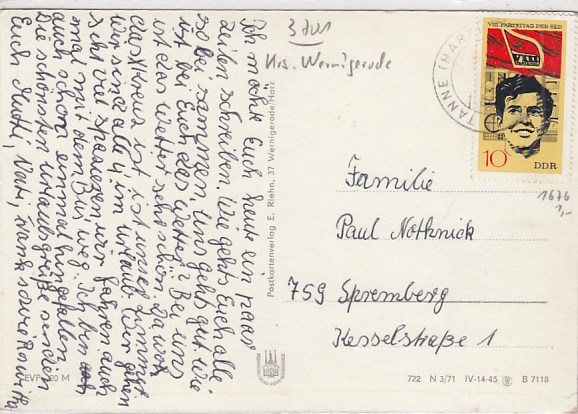 3 Juni
Krs. Wernigerode
VIII. PARTEITAG DER SED
VIII
10 DDR
TANNE (HARZ
1676
1,-
Ich möchte Euch heute ein paar
Zeilen schreiben. Wie gehts Euch alle
so beisammen. Uns gehts gut. Wie
ist bei Euch das Wetter? Bei uns
ist das Wetter sehr schön. Da wo
das Kreuz ist, ist unser Zimmer.
Wir sind alle 4. im Urlaub. Wir gehen
sehr viel spazieren wir fahren auch
mal mit dem Bus weg. Ich bin
auch schon einmal hingefallen
Die schönsten Urlaubsgrüße senden
Euch Mutti, Vati,
Postkartenverlag E. Riehn, 37 Wernigerode/Harz
Familie
Paul Nothnick
759 Spremberg
Kesselstraße 1
EVP 20 M
722 N 3/71 IV-14-45 B 7118